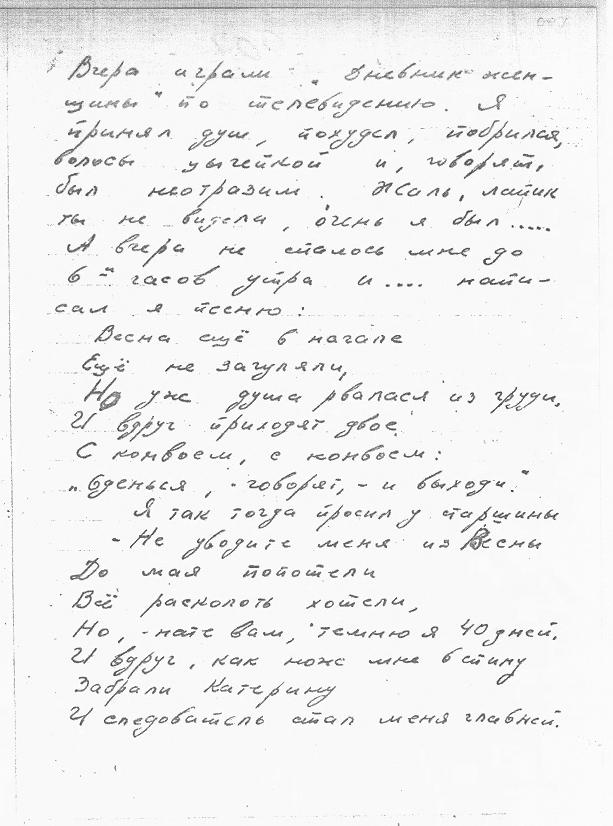 Вчера играли „Дневник жен-
щины" по телевидению. Я
принял душ, похудел, побрился,
волосы укычейкой и, говорят,
был неотразим. Жаль, лапик
ты не видела, очень я был.....
А вчера не спалось мне до
6-и часов утра и .... напи-
сал я песню:
Весна ещё в начале
Ещё не загуляли,
Но уж душа рвалася из груди.
И вдруг приходят двое
С конвоем, с конвоем:
„Оденься, - говорят, - и выходи".
Я так тогда просил у старшины
- Не уводите меня из Весны
До мая пропотели
Всё расколоть хотели,
Но, - нате вам, темню я 40 дней.
И вдруг, как нож мне в спину
Забрали Катерину
И следователь стал меня главней.